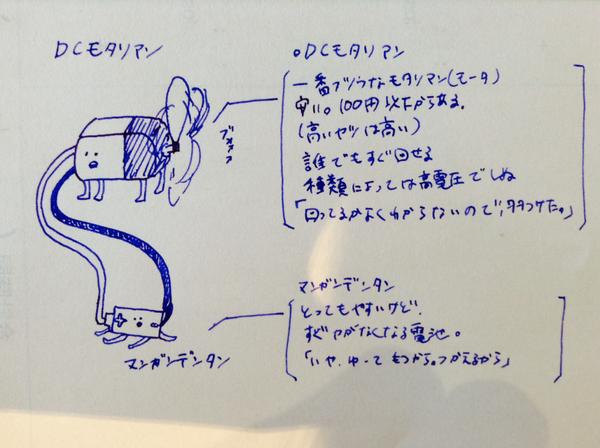 DCモタリマン
ブォォォ
マンガンデンタン
○DCモタリマン
一番フツウなモタリマン(モータ)
安い。100円以下からある。
(高いヤツは高い)
誰でもすぐ回せる
種類によっては高電圧でしぬ
「回ってるかよくわからないので、羽つけた。」
マンガンデンタン
とってもやすいけど、
すぐ力がなくなる電池。
「いや、ゆーて もつから。つかえるから」
+
-